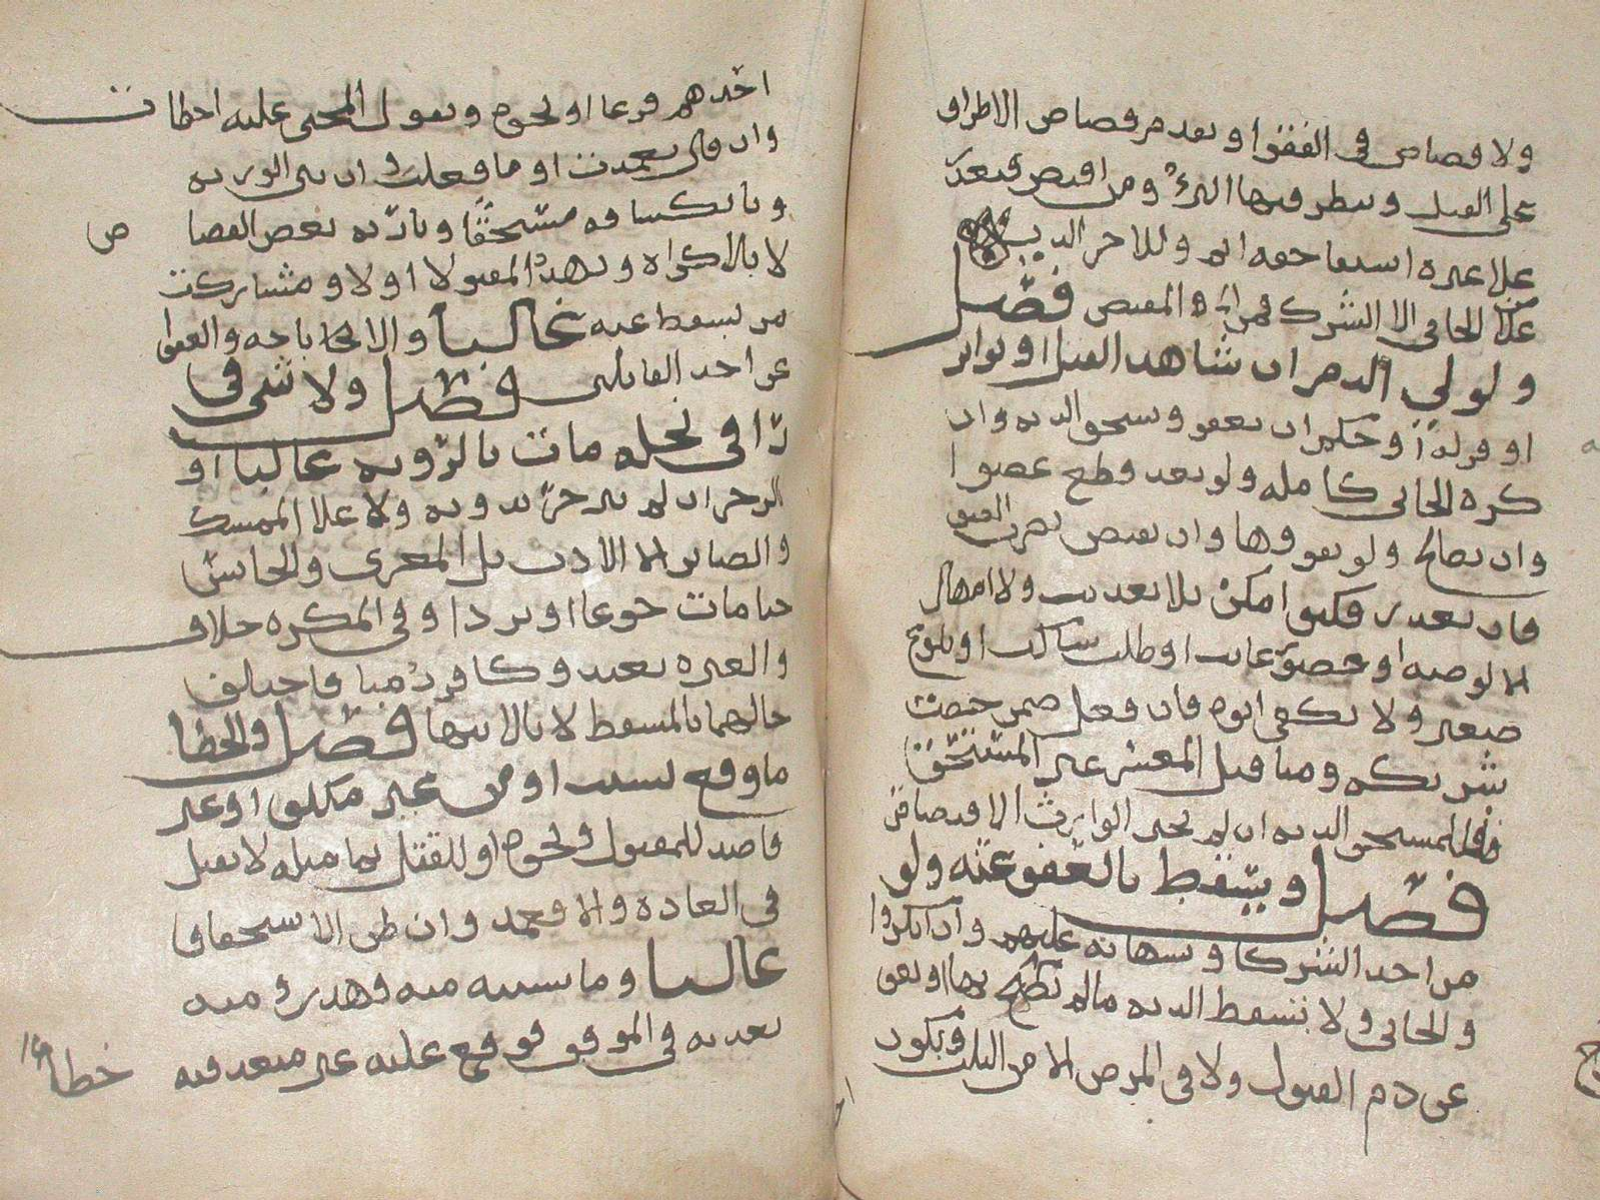 ولا قصاص في الفقوا ويقدم قصاص الاطراف
على القتل وينتظر فيها البرؤ ومن اقتص فتعذر
على غيره استيفا حقه اثم وللاخر الدية
على الجاني الا الشريك فمن اي والمقتص فصل
ولولي الدم ان شاهد القتل او تواتر
او اقر له او حكم ان يعفو ويستحق الدية وان
كره الجاني كاملة ولو بعد قطع عضوا
وان يصالح ولو بفوقها وان يقتص بضرب العنق
فان تعذر فكيف امكن بلا تعذيب ولا امهال
الا لوصية او حضور غايب او طلب ساكت او بلوغ
صغير ولا يكفي ابوه فان فعل ضمن حصة
شريكه ومتا قتل المعسر غير المستحق
فللمستحق الدية ان لم يختر الوارث الاقتصاص
فصل ويسقط بالعفو عنه ولو
من احد الشركا وبشهادته عليهم وان انكروا
والجاني ولا تسقط الدية مالم يصرح بها او يعف
عن دم المقتول ولا في المرض الا من الثلث وبكون
احدهم فرعا او نحوه وبقول المجني عليه اخطات
وان قال تعمدت او ما فعلت وان بين الورثة
وبانكشافه مستحقا وبارثه بعض القصاص
لا بالاكراه وتهدد المقتول اولا ومشاركة
من يسقط عنه غالبا والاباحة والعفو
عن احد القاتلين فصل ولا شي في
راقي نخلة مات بالرؤية غالبا او
الزجر ان لم ينزجر بدونه ولا على الممسك
والصابر الا الادب بل المعري والحابس
حتا مات جوعا او بردا وفي المكره خلاف
والعبرة بعبد وكافر رميا فاختلف
حالهما بالمسقط لا بالانتها فصل والخطا
ما وقع بسبب او من غير مكلف او غير
قاصد للمقتول ونحوه او للقتل بما مثله لا يقتل
في العادة والا فعمد وان ظن الاستحقاق
غالبا وما سببه منه فهدر ومنه
تعديه في الموقف فوقع عليه غير متعد فيه
خطا